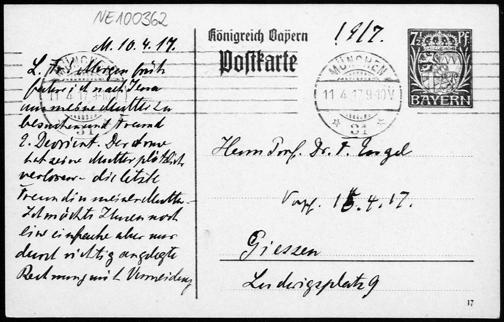 NE100362
M. 10.4.17.
L. F.! Morgen früh
fahre ich nach Jena
um meine Mutter zu
besuchen und Freund
E. Devrient. Der arme
hat seine Mutter plötzlich
verloren – die letzte
Freundin meiner Mutter.
Ich möchte Ihnen noch
eine einfache aber nur
durch richtig angelegte
Rechnung mit Vermeidung
Königreich Bayern
Postkarte
1917.
7½ Pf
BAYERN
MÜNCHEN
11.4.17.9-10V
* 31 *
MÜNCHEN
11.4.17.9-10V
31
Herrn Prof. Dr. F. Engel
17.
Giessen
Ludwigsplatz 9
17